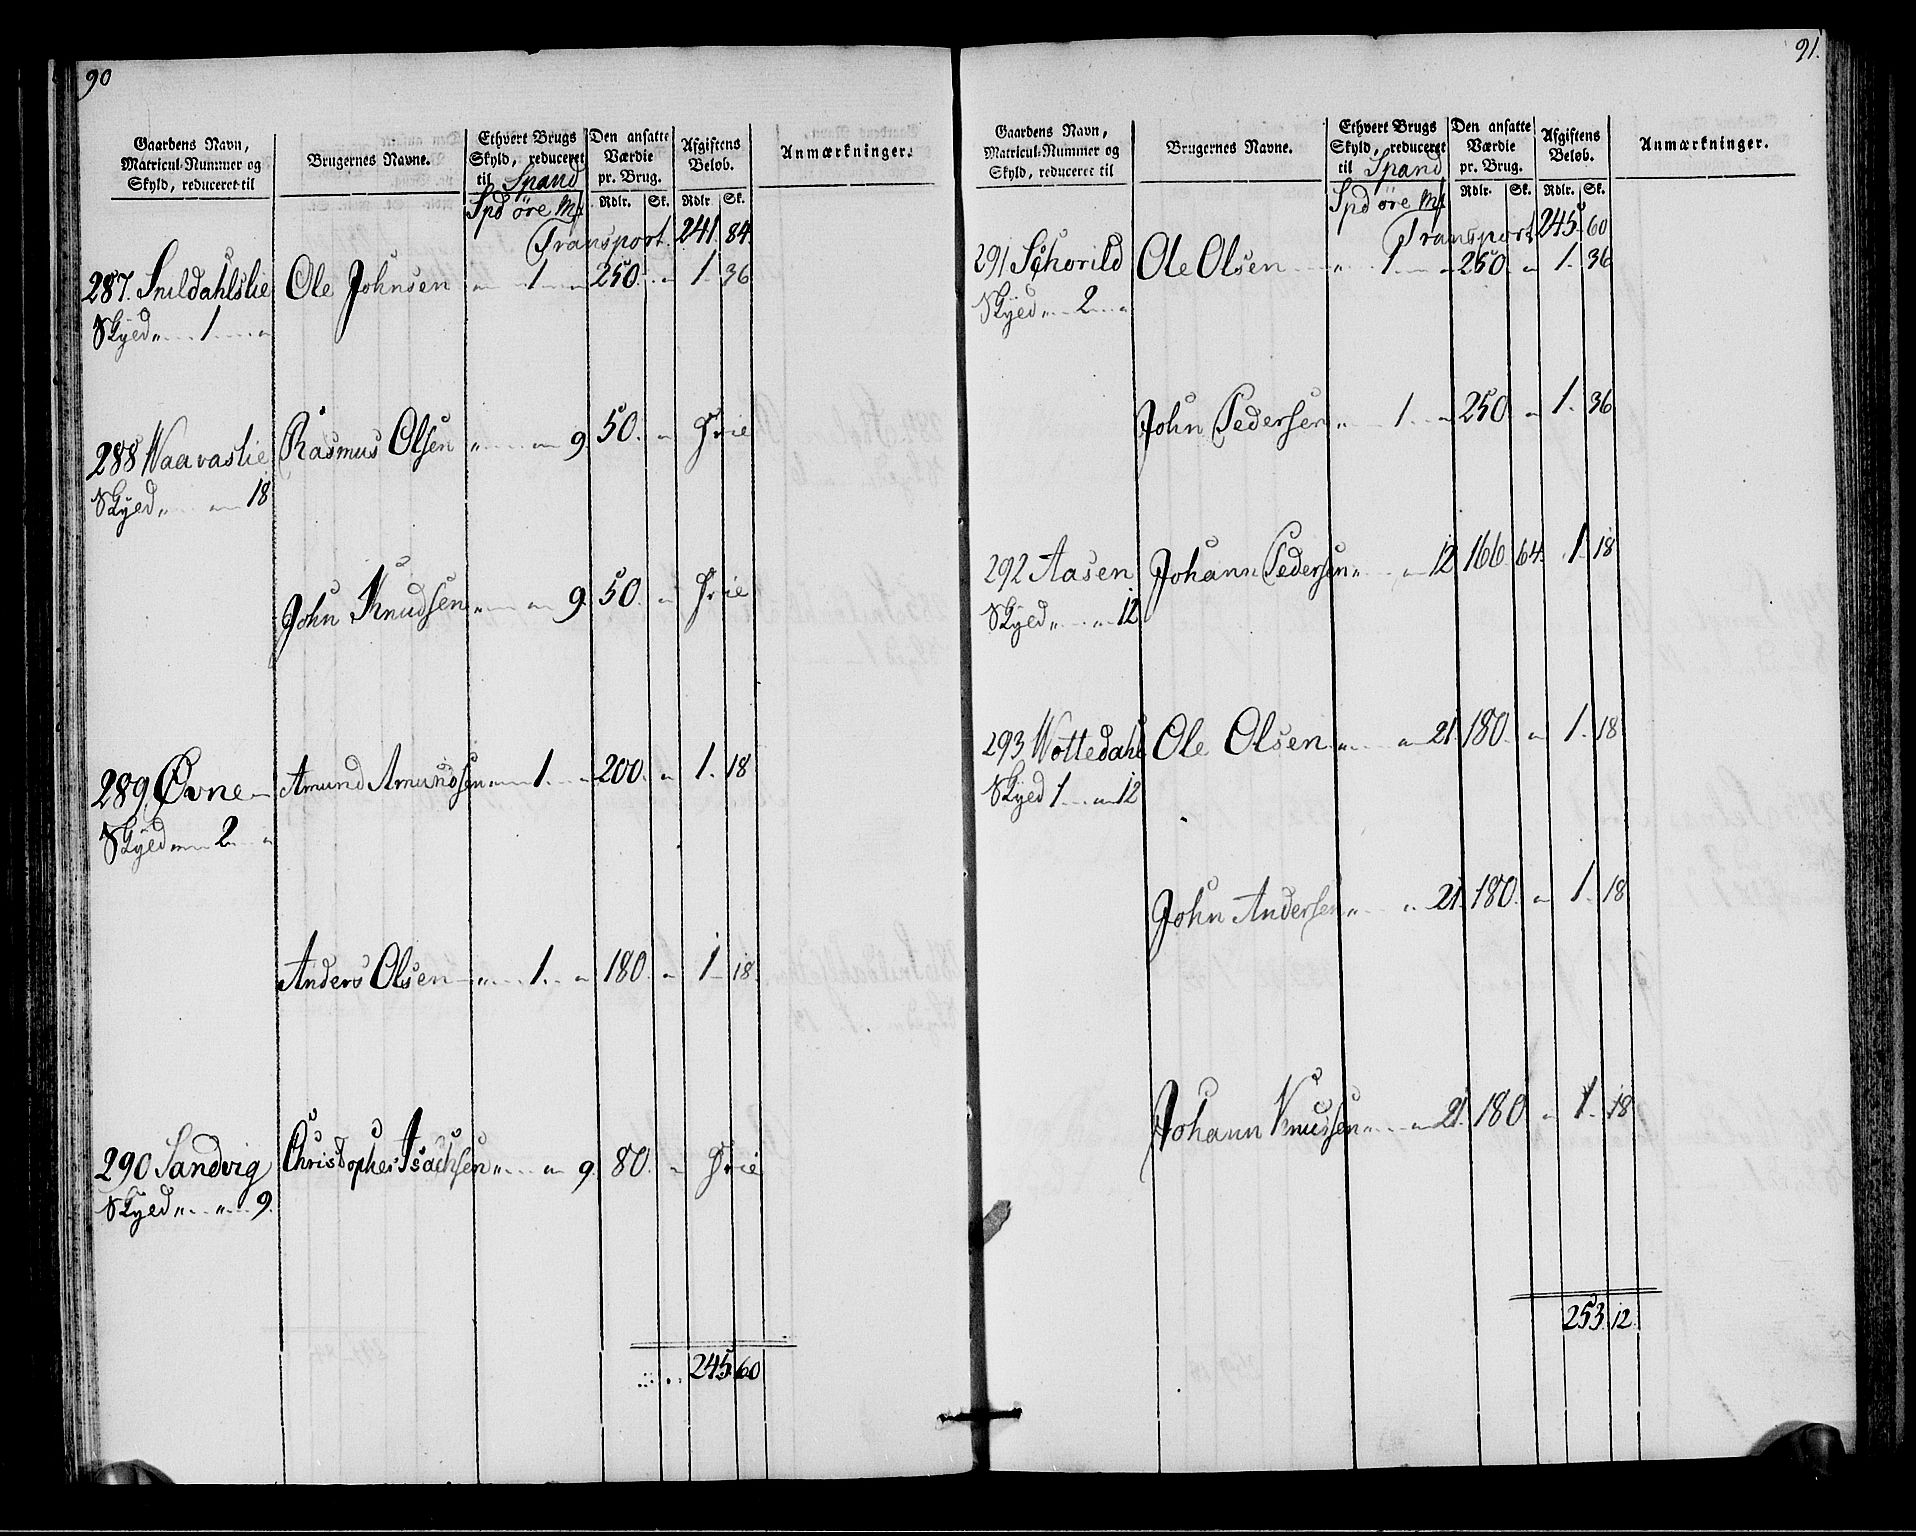 90
Gaardens Navn, Matricul-Nummer og Skyld, reduceret til
Brugernes Navne.
Ethvert Brugs Skyld, reduceret til Spand
Den ansatte Værdie pr. Brug.
Afgiftens Beløb.
Anmærkninger.
Spd öre Ml Rdlr. Sk. Rdlr Sk.
Transport. 241. 84.
287. Snildahlslie Ole Johnsen " 1 " 250. " 1. 36
Skyld " 1 "
288 Waavaslie Rasmus Olsen " " 9. 50. " Frie
Skyld " " 18
John Knudsen " " 9. 50. " Frie
289 Øvne Amund Amundsen " 1. " 200. " 1. 18
Skyld " 2 "
Anders Olsen " 1. " 180. " 1 18.
290 Sandvig Christopher Isachsen " " 9. 80. " Frie
Skyld " " 9.
245. 60
91.
Gaardens Navn, Matricul-Nummer og Skyld, reduceret til
Brugernes Navne.
Ethvert Brugs Skyld, reduceret til Spand
Den ansatte Værdie pr. Brug.
Afgiftens Beløb.
Anmærkninger.
Spd öre Ml Rdlr. Sk. Rdlr. Sk.
Transport 245. 60
291 Schorild Ole Olsen " 1 " 250. " 1. 36
Skyld " 2 "
John Pedersen " 1. " 250 " 1. 36
292 Aasen Johann Pedersen " " 12 166 64. 1. 18
Skyld " " 12
293 Wottedahl Ole Olsen " " 21. 180. " 1. 18
Skyld 1 " 12
John Andersen " " 21. 180. " 1. 18
Johann Knudsen " " 21. 180 " 1. 18
253. 12.